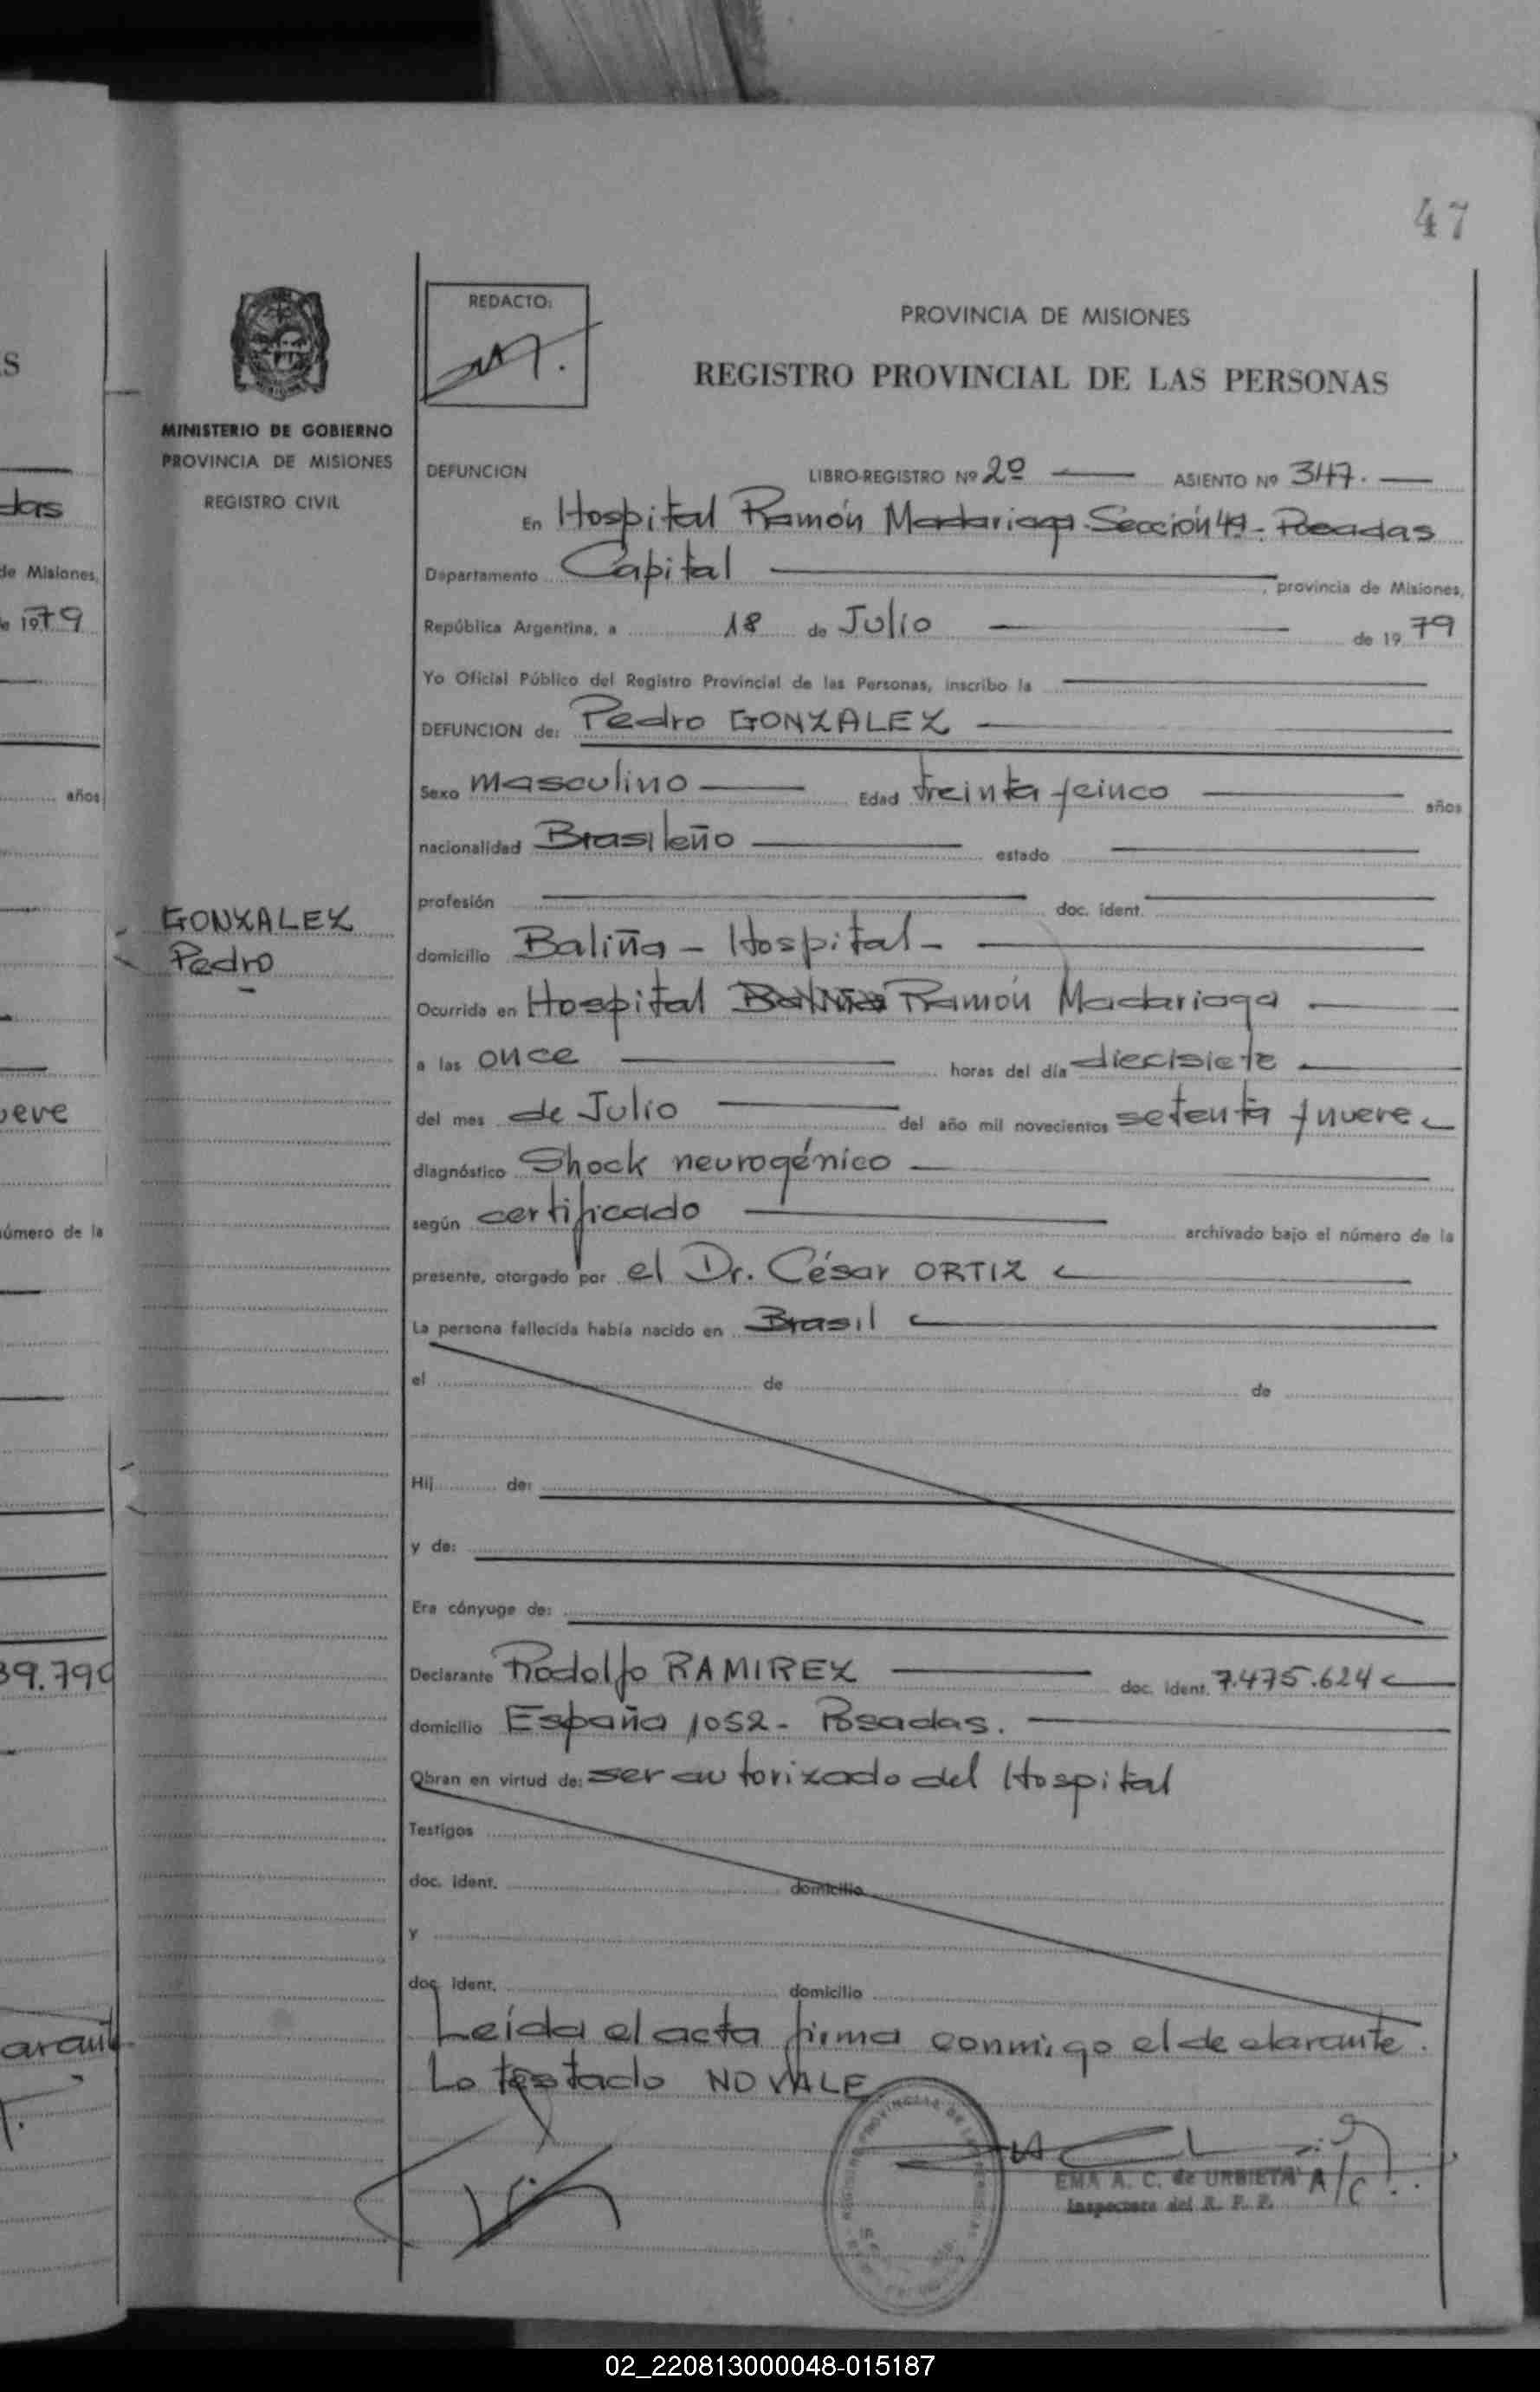 47
REDACTO:
PROVINCIA DE MISIONES
REGISTRO PROVINCIAL DE LAS PERSONAS
MINISTERIO DE GOBIERNO
PROVINCIA DE MISIONES
REGISTRO CIVIL
DEFUNCION LIBRO-REGISTRO Nº 2º ASIENTO Nº 347.
En Hospital Ramón Madariaga. Sección 4ª - Posadas
Departamento Capital , provincia de Misiones,
República Argentina, a 18 de Julio de 1979
Yo Oficial Público del Registro Provincial de las Personas, inscribo la
DEFUNCION de: Pedro GONZALEZ
Sexo masculino Edad treinta y cinco años
nacionalidad Brasileño estado
profesión doc. ident.
GONZALEZ
Pedro
domicilio Baliña - Hospital -
Ocurrida en Hospital Baliña Ramón Madariaga
a las once horas del día diecisiete
del mes de Julio del año mil novecientos setenta y nueve
diagnóstico Shock neurogénico
según certificado archivado bajo el número de la
presente, otorgado por el Dr. César ORTIZ
La persona fallecida había nacido en Brasil
el de de
Hij de:
y de:
Era cónyuge de:
Declarante Rodolfo RAMIREZ doc. ident. 7.475.624
domicilio España 1052 - Posadas.
Obran en virtud de: ser autorizado del Hospital
Testigos
doc. ident. domicilio
y
doc. ident. domicilio
Leída el acta firma conmigo el declarante.
Lo testado NO VALE
EMA A. C. de URBIETA A/C
Inspectora del R. P. P.
S
das
de Misiones,
1979
años
ueve
número de la
39.790
02_220813000048-015187